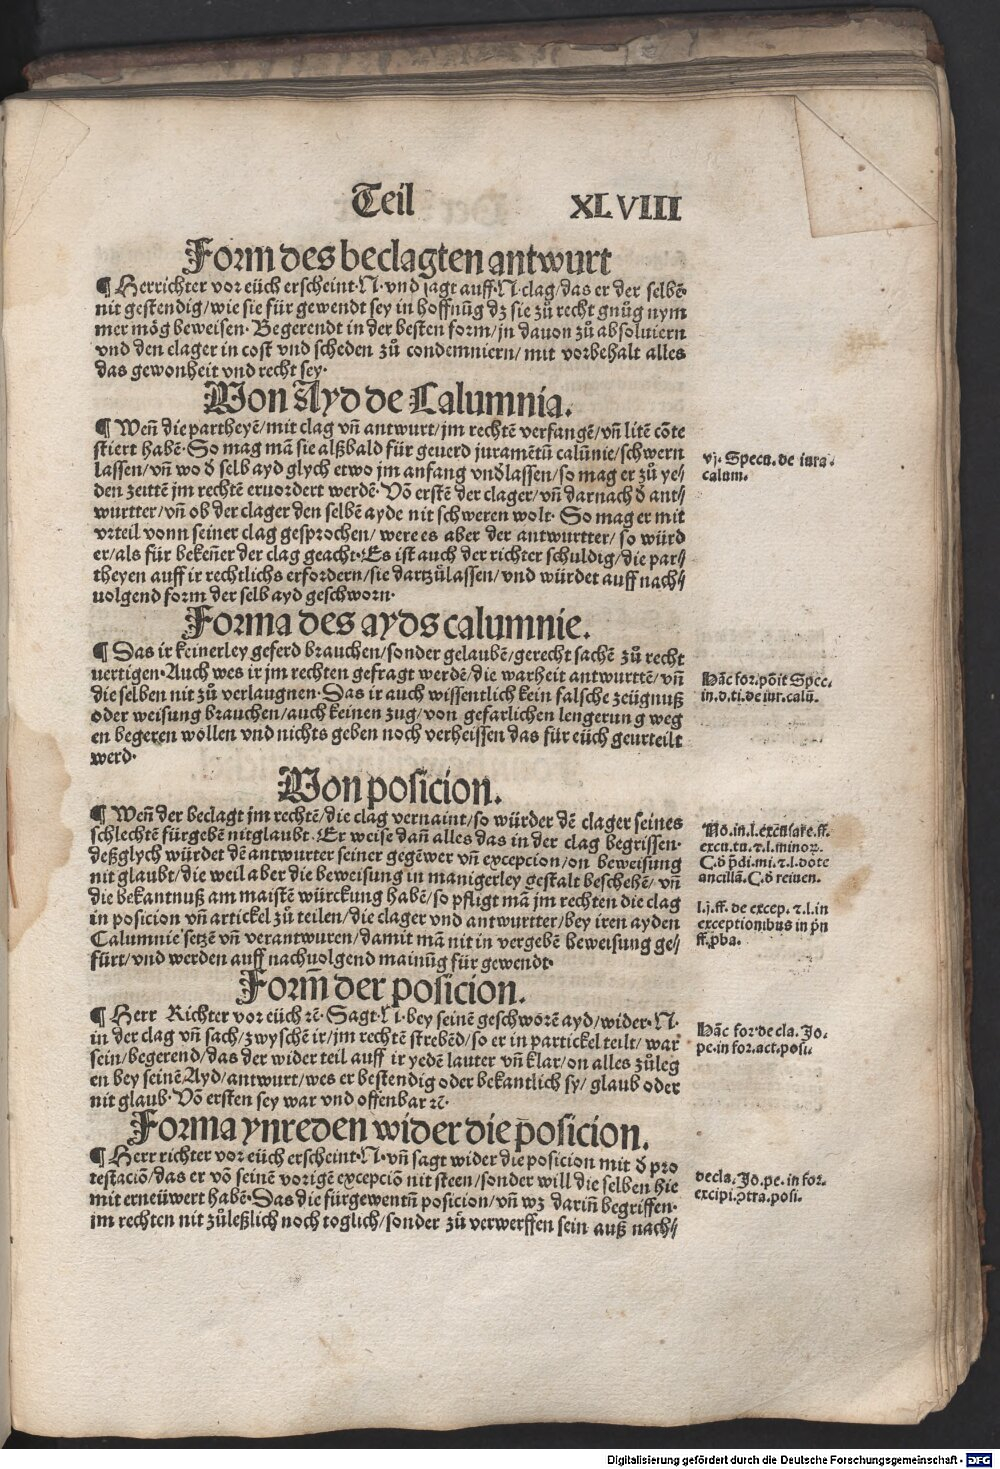 Teil XLVIII
Form des beclagten antwurt
¶ Herrichter vor eüch erscheint·N·vnd sagt auff·N·clag/das er der selbē
nit gestendig/wie sie für gewendt sey in hoffnūg dz sie zů recht gnůg nym
mer mög beweisen· Begerendt in der besten form/jn dauon zů absoluiern
vnd den clager in cost vnd scheden zů condemniern/mit vorbehalt alles
das gewonheit vnd recht sey·
Von Ayd de Calumnia.
¶ Weñ die partheyē/mit clag vñ antwurt/jm rechtē verfangē/vñ litē cōte
stiert habē· So mag mā sie alßbald für geuerd juramētū calūnie/schwern
lassen/vñ wo d̄ selb ayd glych etwo jm anfang vnd̄lassen/so mag er zů ye/
den zeittē jm rechtē eruordert werdē· Vō erstē der clager/vñ darnach d̄ ant/
wurtter/vñ ob der clager den selbē ayde nit schweren wolt· So mag er mit
vrteil vonn seiner clag gesprochen/were es aber der antwurtter/so würd
er/als für bekeñer der clag geacht· Es ist auch der richter schuldig/die par/
theyen auff ir rechtlichs erfordern/sie dartzůlassen/vnd würdet auff nach/
uolgend form der selb ayd geschworn·
vj. Specu. de iura.
calum.
Forma des ayds calumnie.
¶ Das ir keinerley geferd brauchen/sonder gelaubē/gerecht sachē zů recht
uertigen· Auch wes ir jm rechten gefragt werdē/die warheit antwurttē/vñ
die selben nit zů verlaugnen· Das ir auch wissentlich kein falsche zeügnuß
oder weisung brauchen/auch keinen zug/von gefarlichen lengerung weg
en begeren wöllen vnd nichts geben noch verheissen das für eüch geurteilt
werd·
Hāc for. pōit Spec.
in. d. ti. de iur. calū.
Von posicion.
¶ Weñ der beclagt jm rechtē/die clag vernaint/so würder dē clager seines
schlechtē fürgebē nit glaubt· Er weise dañ alles das in der clag begrissen·
deßglych würdet dē antwurter seiner gegēwer vñ excepcion/on beweisung
nit glaubt/die weil aber die beweisung in manigerley gestalt beschehē/vñ
die bekantnuß am maistē würckung habē/so pfligt mā jm rechten die clag
in posicion vñ artickel zů teilen/die clager vnd antwurtter/bey iren ayden
Calumnie setzē vñ verantwuren/damit mā nit in vergebē beweisung ge/
fürt/vnd werden auff nachuolgend mainūg für gewendt·
excu. tu. ⁊. l. minor.
ancillā. C. d̄ reiuen.
l. j. ff. de excep. ⁊. l. in
exceptionibus in pn̄
ff. ꝓba.
Form̄ der posicion.
¶ Herr Richter vor eüch ⁊c̄· Sagt·N·bey seinē geschworē ayd/wider·N·
in der clag vñ sach/zwyschē ir/jm rechtē strebēd/so er in partickel teilt/war
sein/begerend/das der wider teil auff ir yedē lauter vñ klar/on alles zůleg
en bey seinē Ayd/antwurt/wes er bestendig oder bekantlich sy/glaub oder
nit glaub· Vō ersten sey war vnd offenbar ⁊c̄·
Hāc for de cla. Jo.
pe. in for. act. posi.
Forma ynreden wider die posicion.
¶ Herr richter vor eüch erscheint·N·vñ sagt wider die posicion mit d̄ pro
testaciō/das er vō seinē vorigē excepciō nit steen/sonder will die selben hie
mit erneüwert habē· Das die fürgewentñ posicion/vñ wz dariñ begriffen·
jm rechten nit zůleßlich noch toglich/sonder zů verwerffen sein auß nach/
decla. Jō. pe. in for.
excipi. ꝯtra. posi.
Digitalisierung gefördert durch die Deutsche Forschungsgemeinschaft - DFG